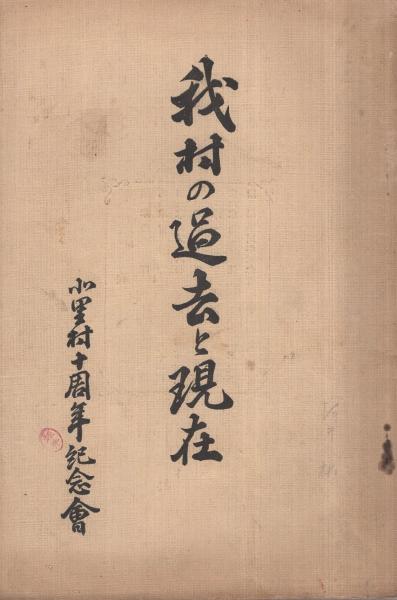 我村の過去と現在
小里村十周年記念會